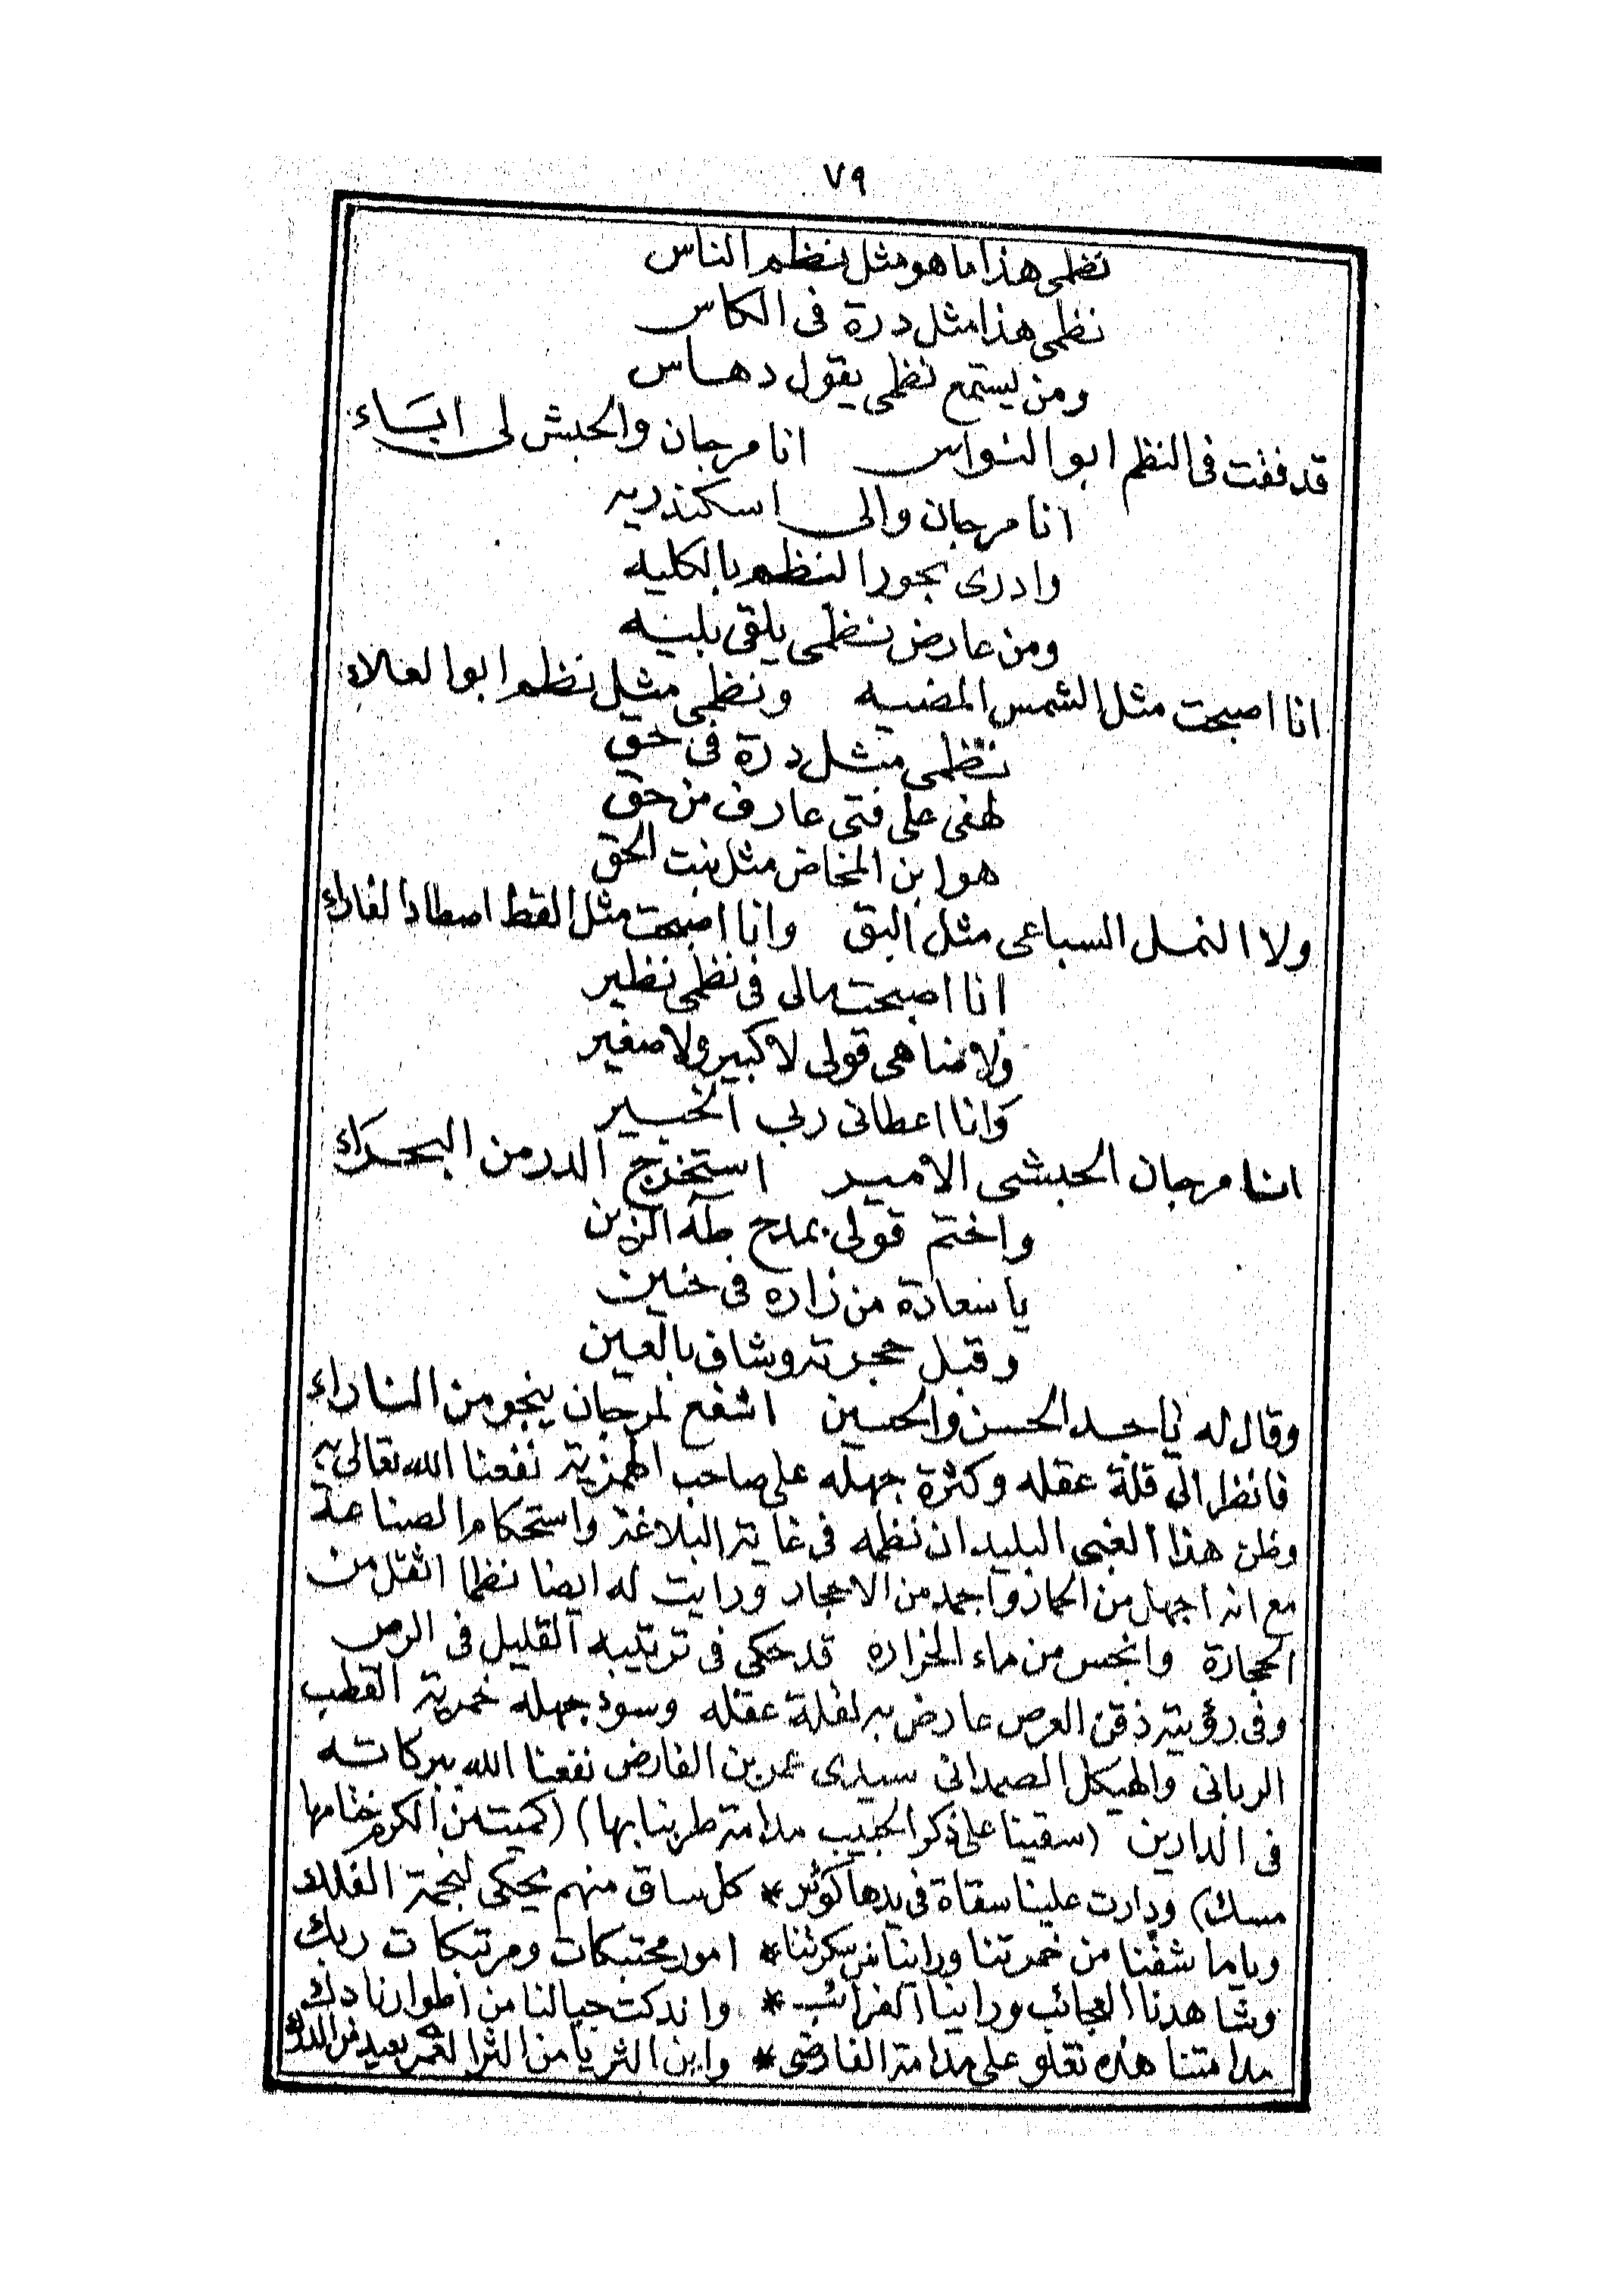 ٧٩
نظمى هذا ما هو مثل نظم الناس
نظمى هذا مثل درة فى الكاس
ومن يستمع نظمى يقول دهاس
قد ففت فى النظم ابو النواس انا مرجان والحبش لى ابساء
انا مرجان والى اسكندريه
وادرى بحور النظم بالكليه
ومن عارض نظمى يلقى بليه
انا اصبحت مثل الشمس المضيه ونظمى مثيل نظم ابو العلاء
نظمى مثل درة فى حق
لهفى على فتى عارف من حق
هو ابن المخاض مثل بنت الحق
ولا النمل السباعى مثل البق وانا اصبحت مثل القط اصطاد الفاراء
انا اصبحت مالى فى نظمى نظير
ولا ضاهى قولى لا كبير ولا صغير
وانا اعطانى ربى الخبير
انا مرجان الحبشى الامير استخرج الدر من البحراء
واختم قولى بمدح طه الزين
يا سعادة من زاره فى حنين
وقبل حجرته وشاف بالعين
وقال له ياجد الحسن والحسين اشفع لمرجان ينجو من الناراء
فانظر الى قلة عقله وكثرة جهله على صاحب الهمزية نفعنا الله تعالى به
وظن هذا الغبى البليد ان نظمه فى غاية البلاغة واستحكام الصناعة
مع انه اجهل من الحمار واجمد من الاحجار ورايت له ايضا نظما اثقل من
الحجارة وانجس من ماء الخراره قد حكى فى ترتيبه القليل فى الرص
وفى رؤيته ذقن العرص عارض به لقلة عقله وسوء جهله خمرية القطب
الربانى والهيكل الصمدانى سيدى عمر بن الفارض نفعنا الله ببركاته
فى الدارين (سقينا على ذكر الحبيب مدامة طربنا بها) (كميته من الكرم ختامها
مسك) ودارت علينا سقاة فى يدها كوثر * كل ساق منهم يحكى لنجمة الفلك
وياما شفنا من خمرتنا وراينا من سكرتنا * امور محتبكات ومرتبكات ربك
وشاهدنا العجائب وراينا الغرائب * واندكت جبالنا من اطوارنا دك
مدامتنا هذه تعلو على مدامة الفارضى * واين الثريا من الثرا القمر بعيد من الدرك